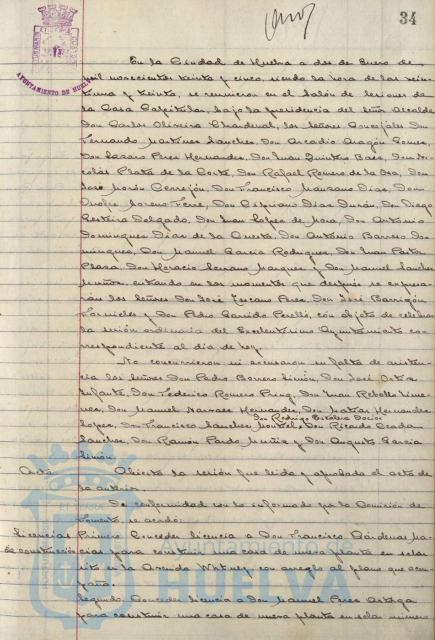 34
AYUNTAMIENTO DE HUELVA
En la Ciudad de Huelva a dos de Enero de
mil novecientos treinta y cinco, siendo la hora de las veinte
una y treinta, se reunieron en el salón de sesiones de
la Casa Capitular, bajo la presidencia del Señor Alcalde
Don Carlos Oliveira Chardenal, los señores Concejales Don
Fernando Martinez Sanchez, Don Arcadio Aragón Gomez,
Don Lazaro Perez Hernandez, Don Juan Quintero Baez, Don Ni-
colás Plata de la Corte, Don Rafael Romero de la Osa, Don
José Morón Cerrejón, Don Francisco Manzano Diaz, Don
Onofre Moreno Ferre, Don Cipriano Diaz Durán, Don Diego
Delgado, Don Juan López de Mora, Don Antonio
Dominguez Diaz de la Cuesta, Don Antonio Barroso Do-
minguez, Don Manuel Garcia Rodriguez, Don Juan
Plaza, Don Horacio Serrano Marquez y Don Manuel Sanchez
Muñoz, entrando en los momentos que después se expresa-
rán los Señores Don José Toscano Perez, Don José Barrigón
Fornieles y Don Pedro Garrido Perelló, con objeto de celebrar
la sesión ordinaria del Excelentísimo Ayuntamiento co-
rrespondiente al dia de hoy.
No concurrieron ni excusaron su falta de asisten-
cia los señores Don Pedro Borrero Limón, Don José
Infante, Don Federico Romero Don Juan Rebollo Jime-
nez, Don Manuel Narvaez Hernandez, Don Matias Hernandez
Don Rodrigo
Lopez, Don Francisco Sanchez Don Ricardo
Sanchez, Don Ramón Pardo Muñiz y Don Augusto Garcia
Limón.
Acta Abierta la sesión fue leida y aprobada el acta de
la anterior.
De conformidad con lo informado por la Comisión de
Fomento, se acordó:
Licencias Primero: Conceder licencia a Don Francisco Cárdenas Ma-
de construcción cias para construir una casa de nueva planta en solar
sito en la Avenida con arreglo al plano que acom-
paña.
Segundo: Conceder licencia a Don Manuel Perez Ortega
para construir una casa de nueva planta en solar número
Ayuntamiento de
HUELVA